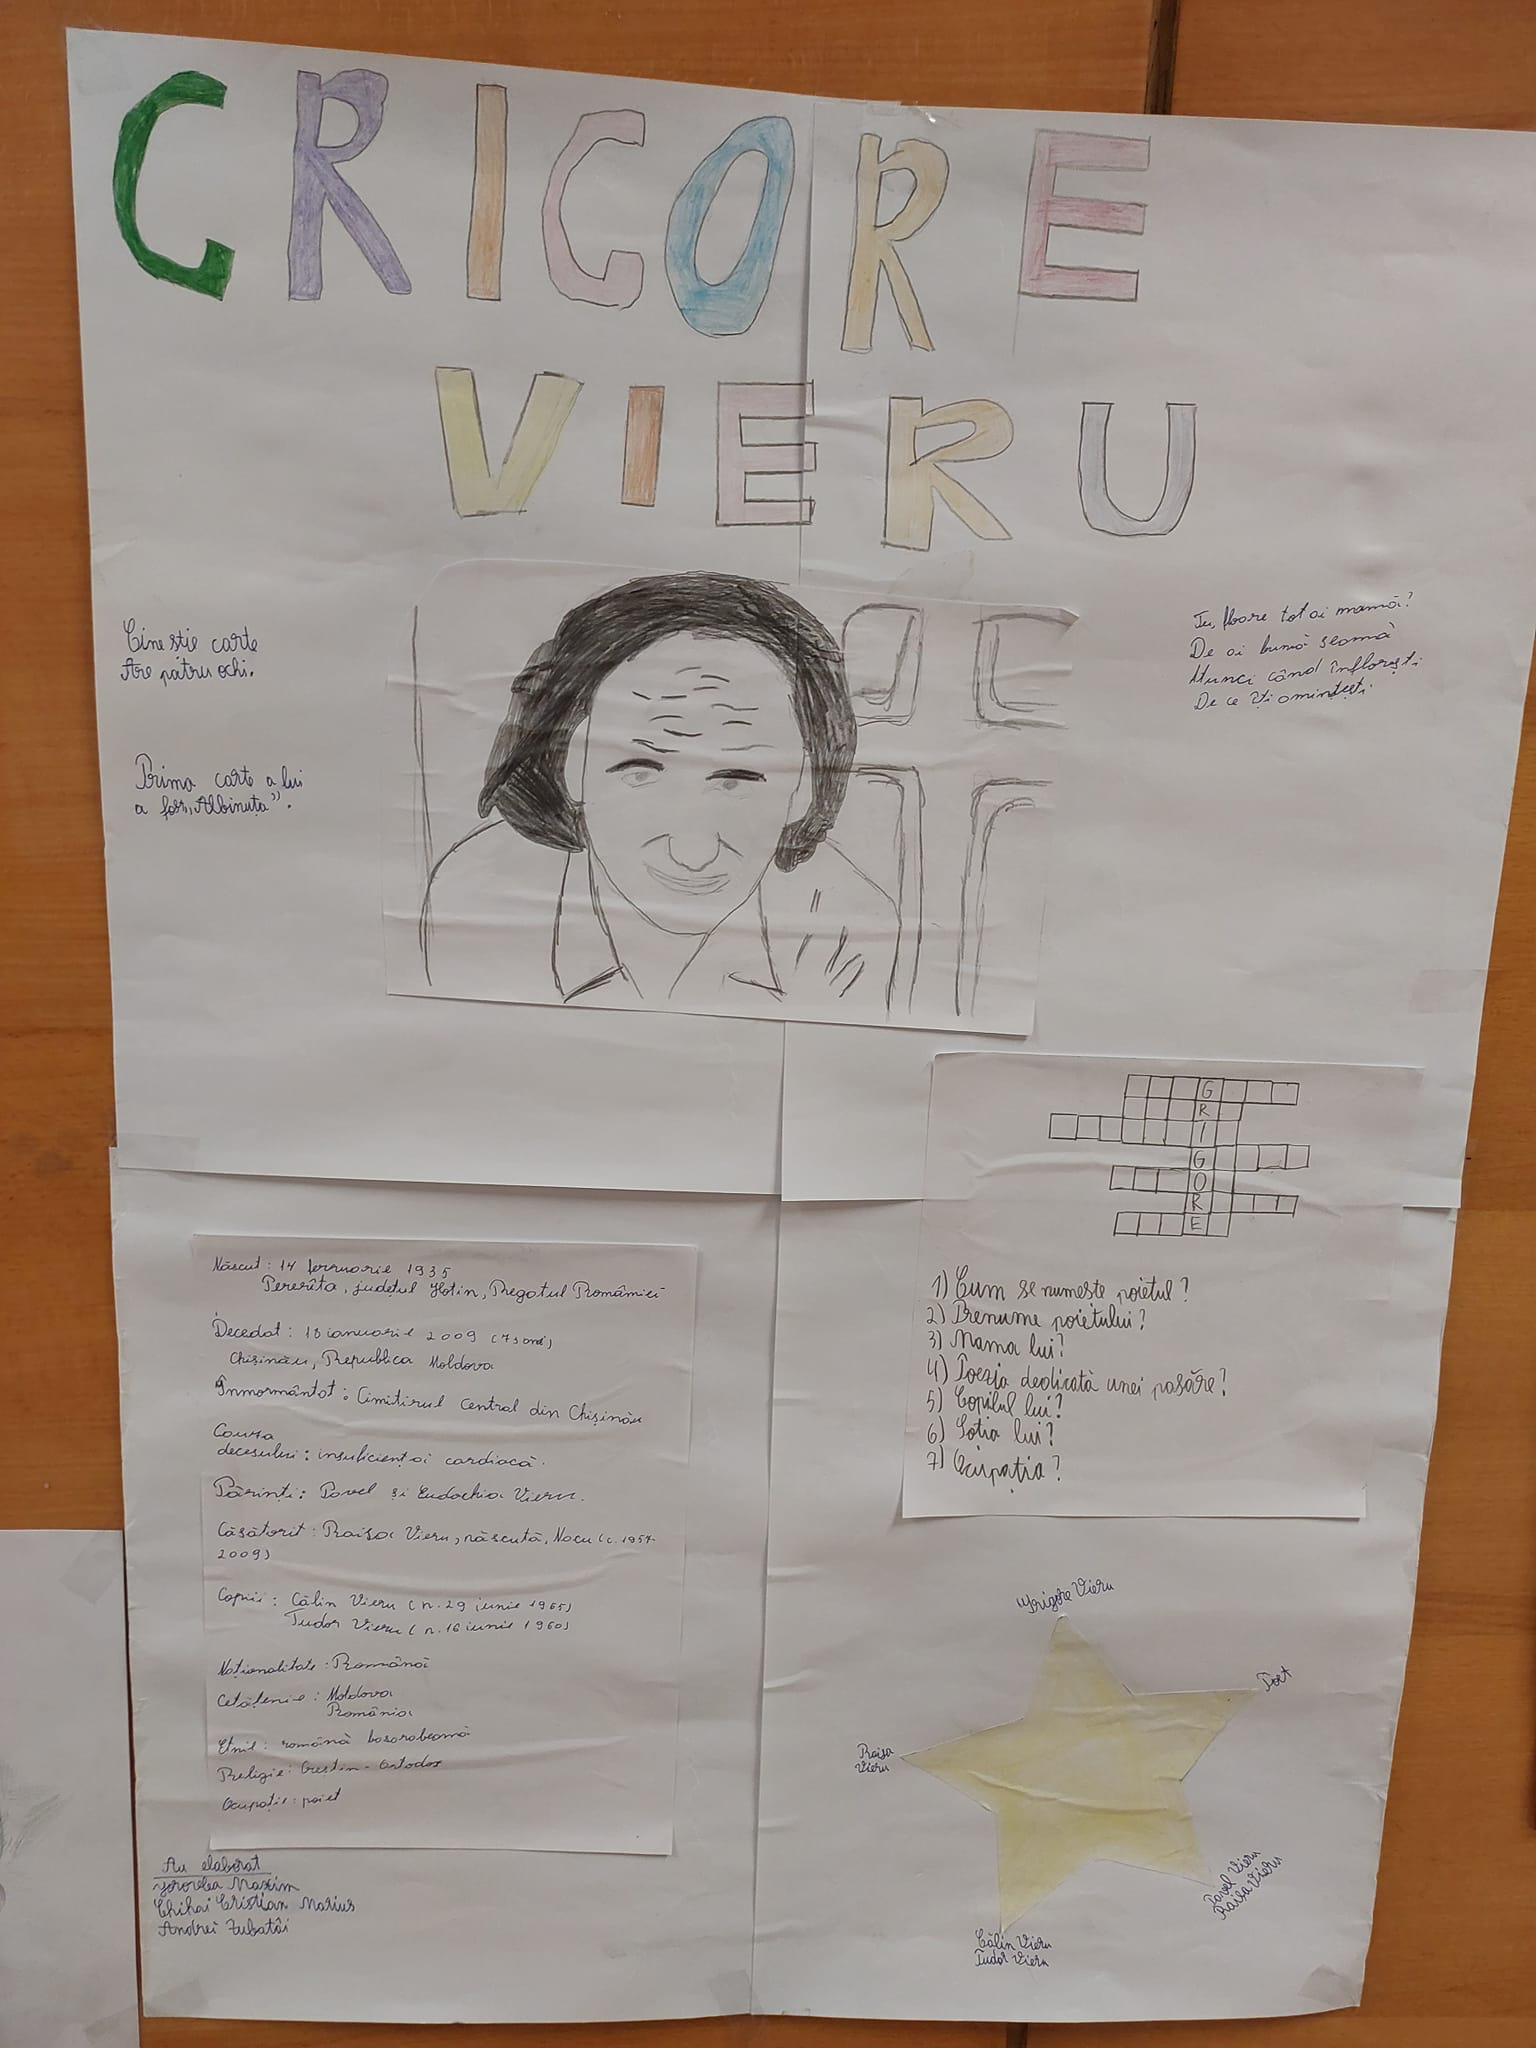 GRIGORE
VIERU
Cine stie carte
Are patru ochi.
Prima carte a lui
a fost „Albinuța”.
Tu, floare tot ai mamă?
De ai bună seamă
Atunci când înflorești
De ce îți amintești
G
R
I
G
O
R
E
1) Cum se numeste poietul?
2) Prenume poietului?
3) Mama lui?
4) Poezia dedicată unei pasăre?
5) Copilul lui?
6) Soția lui?
7) Ocupația?
Născut: 14 februarie 1935
Pererîta, județul Hotin, Regatul României
Decedat: 18 ianuarie 2009 (73 ani)
Chișinău, Republica Moldova
Înmormântat: Cimitirul central din Chișinău
Cauza
decesului: insuficiență cardiacă.
Părinți: Pavel și Eudochia Vieru.
Căsătorit: Raisa Vieru, născută, Nacu (c. 1957-
2009)
Copii: Călin Vieru (n. 29 iunie 1965)
Tudor Vieru (n. 16 iunie 1960)
Naționalitate: Română
Cetățenie: Moldova
România
Etnie: română basarabeană
Religie: Creștin-Ortodox
Ocupație: poiet
Grigore Vieru
Poet
Raisa
Vieru
Pavel Vieru
Raisa Vieru
Călin Vieru
Tudor Vieru
Au elaborat
Maxim
Chihai Cristian Marius
Andrei Zubatâi